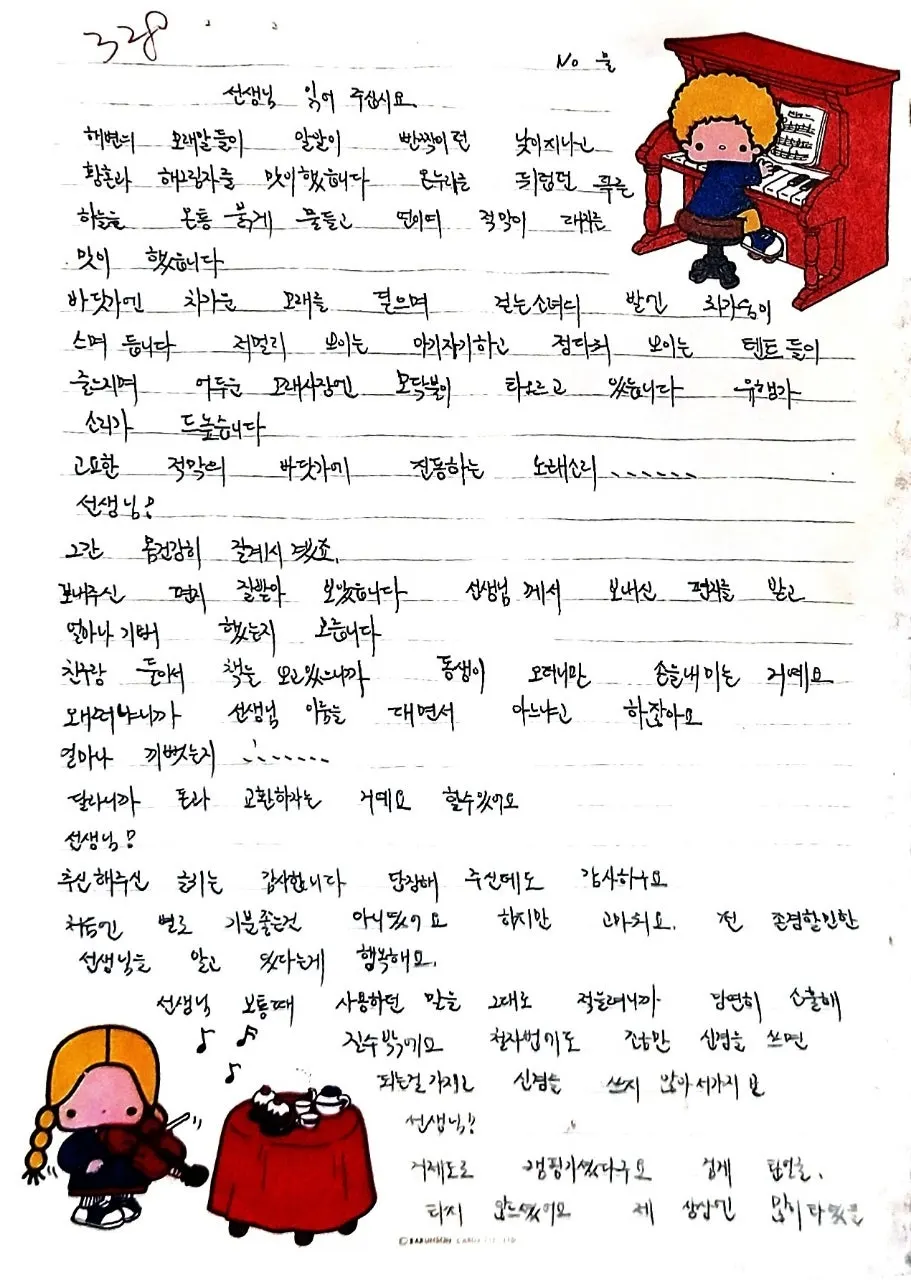 328
No 물
선생님 읽어 주십시요.
해변의 모래알들이 알알이 빤짝이던 낮이 지나고
황혼과 해그림자를 맞이했습니다 온누리를 띄웠던 푸른
하늘을 온통 붉게 물들고 연이며 적막이 대지를
맞이 했습니다
바닷가엔 차가운 모래를 걷으며 걷는 소녀의 발엔 차가움이
스며 듭니다 저멀리 보이는 아기자기하고 정다히 보이는 텐트들이
줄느지며 어두운 모래사장엔 모닥불이 타오르고 있습니다 유행가
소리가 드높습니다
고요한 적막의 바닷가에 진동하는 노래소리 . . . . . . .
선생님?
그간 몸건강히 잘계시 겠죠.
보내주신 편지 잘받아 보았습니다 선생님 께서 보내신 편지를 받고
얼마나 기뻐 했는지 모릅니다
친구랑 둘이서 책을 보고있으니까 동생이 오더니만 손을내미는 거예요
왜그러냐니까 선생님 이름을 대면서 아느냐고 하잖아요
얼마나 기뻤는지 . . . . . . . .
달라니까 돈과 교환하자는 거예요 할수있어요
선생님?
추신해주신 글귀는 감사합니다 답장해 주신데도 감사하구요
처음엔 별로 기분좋은건 아니였어요 하지만 고마워요. 전 존경할만한
선생님을 알고 있다는게 행복해요.
선생님 보통때 사용하던 말을 그대로 적을려니까 당연히 소홀해
질수밖에요 철자법이도 조금만 신경을 쓰면
되는걸 가지고 신경을 쓰지 않아서가지 뭐
선생님?
거제도로 캠핑가셨다구요 검게 타인을.
타지 않으셨어요 제 상상엔 많이 타셨을